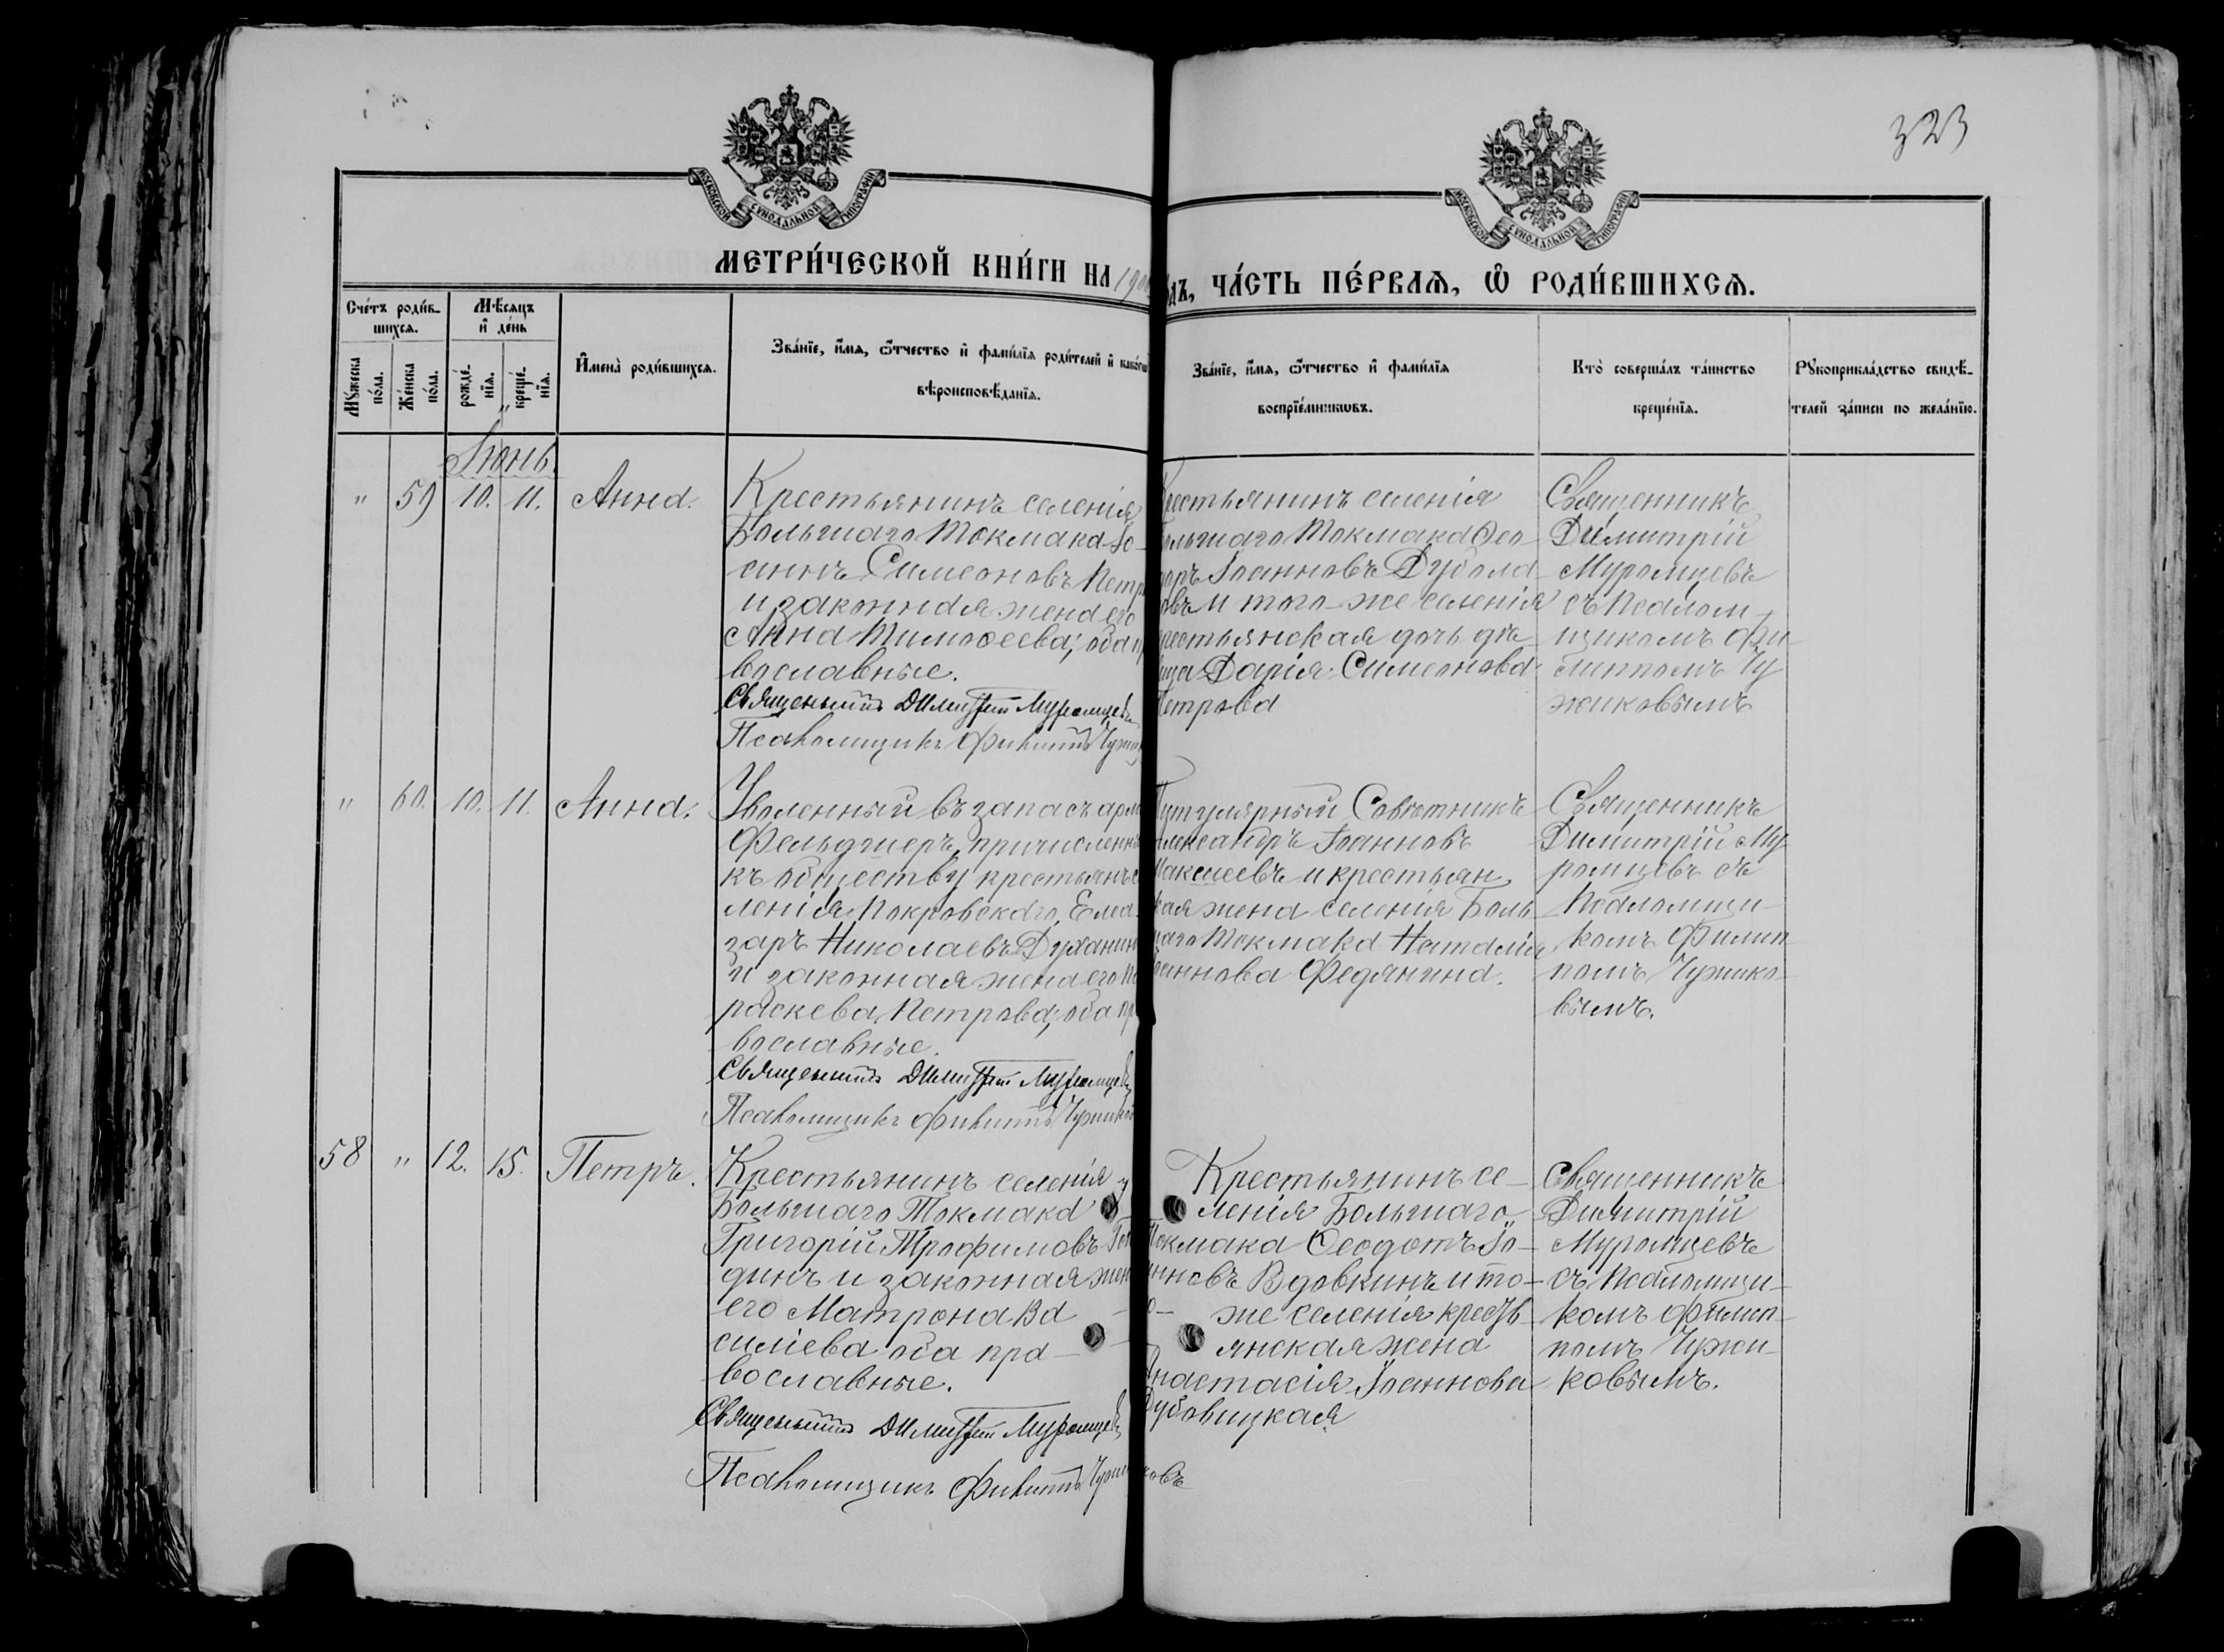 323
МОСКОВСКОЙ СѴНОДАЛЬНОЙ ТИПОГРАФІИ
МОСКОВСКОЙ СѴНОДАЛЬНОЙ ТИПОГРАФІИ
МЕТРИ́ЧЕСКОЙ КНИ́ГИ НА 190
ДЪ, ЧА́СТЬ ПЕ́РВАѦ, Ѡ҆ РОДИ́ВШИХСѦ.
Сче́тъ роди́в-
шихсѧ.
Мꙋ́жеска
по́ла.
Же́нска
по́ла.
Мѣ́сѧцъ
и҆ де́нь
рожде́-
нїѧ.
креще́-
нїѧ.
И҆мена̀ роди́вшихсѧ.
Зва́нїе, и҆́мѧ, ѻ҆́тчество и҆ фами́лїѧ роди́телей и҆ како́гѡ
вѣроисповѣ́данїѧ.
Зва́нїе, и҆́мѧ, ѻ҆́тчество и҆ фами́лїѧ
воспрїе́мникѡвъ.
Кто̀ соверша́лъ та́инство
креще́нїѧ.
Рꙋкоприкла́дство свидѣ́-
телей за́писи по жела́нїю.
Іюнь.
" 59 10. 11. Анна.
Крестьянинъ селенія
Большаго Токмака Іо-
аннъ Симеоновъ Петр
и законная жена его
Анна Тимофеева; оба п
вославные.
Священникъ Димитрій Муромцевъ
Псаломщикъ Филиппъ Чужи
рестьянинъ селенія
ольшаго Токмака Ѳео
доръ Іоанновъ Дубола
овъ и того-же селенія
рестьянская дочь дѣ-
ица Дарія Симеонова
Петрова
Священникъ
Димитрій
Муромцевъ
съ Псалом-
щикомъ Фи-
липпомъ Чу
жиковымъ
" 60. 10. 11. Анна.
Уволенный въ запасъ арм
Фельдшеръ, причисленн
къ обществу крестьянъ с
ленія Покровскаго, Елеа-
заръ Николаевъ Духанин
и законная жена его Па
раскева Петрова; оба пр
вославные.
Священникъ Димитрій Муромцевъ
Псаломщикъ Филиппъ Чужиков
Титулярный Совѣтникъ
Александръ Іоанновъ
Макеевъ и крестьян
кая жена селенія Боль
шаго Токмака Наталія
Іоаннова Федянина.
Священникъ
Димитрій Му
ромцевъ съ
Псаломщи-
комъ Филип
помъ Чужико-
вымъ.
58 " 12. 15. Петръ.
Крестьянинъ селенія
Большаго Токмака
Григорій Трофимовъ
динъ и законная жен
его Матрона Ва
силіева оба пра-
вославные.
Священникъ Димитрій Муромцевъ
Псаломщикъ Филиппъ Чужиковъ
Крестьянинъ се-
ленія Большаго
Токмака Ѳеодотъ Іо-
анновъ Вдовкинъ и то-
го- же селенія кресть
янская жена
Анастасія Іоаннова
Дубовицкая
Священникъ
Димитрій
Муромцевъ
съ Псаломщи-
комъ Филип-
помъ Чужи-
ковымъ.